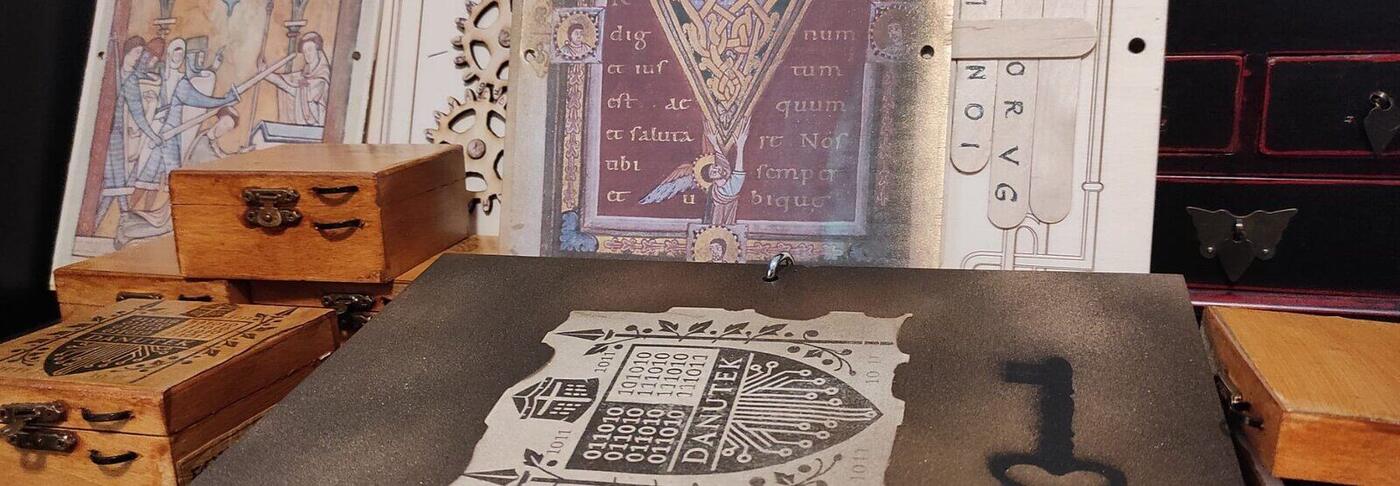 dig num
et iuſ tum
eſt . ac quum
et ſaluta re Noſ
tibi ſemper
et u bique
I
N
O
I
O
R
V
G
DANUTEK
1011
101010
111010
111010
111011
011010
011010
011010
011010
DANUTEK
1011
1011
1011